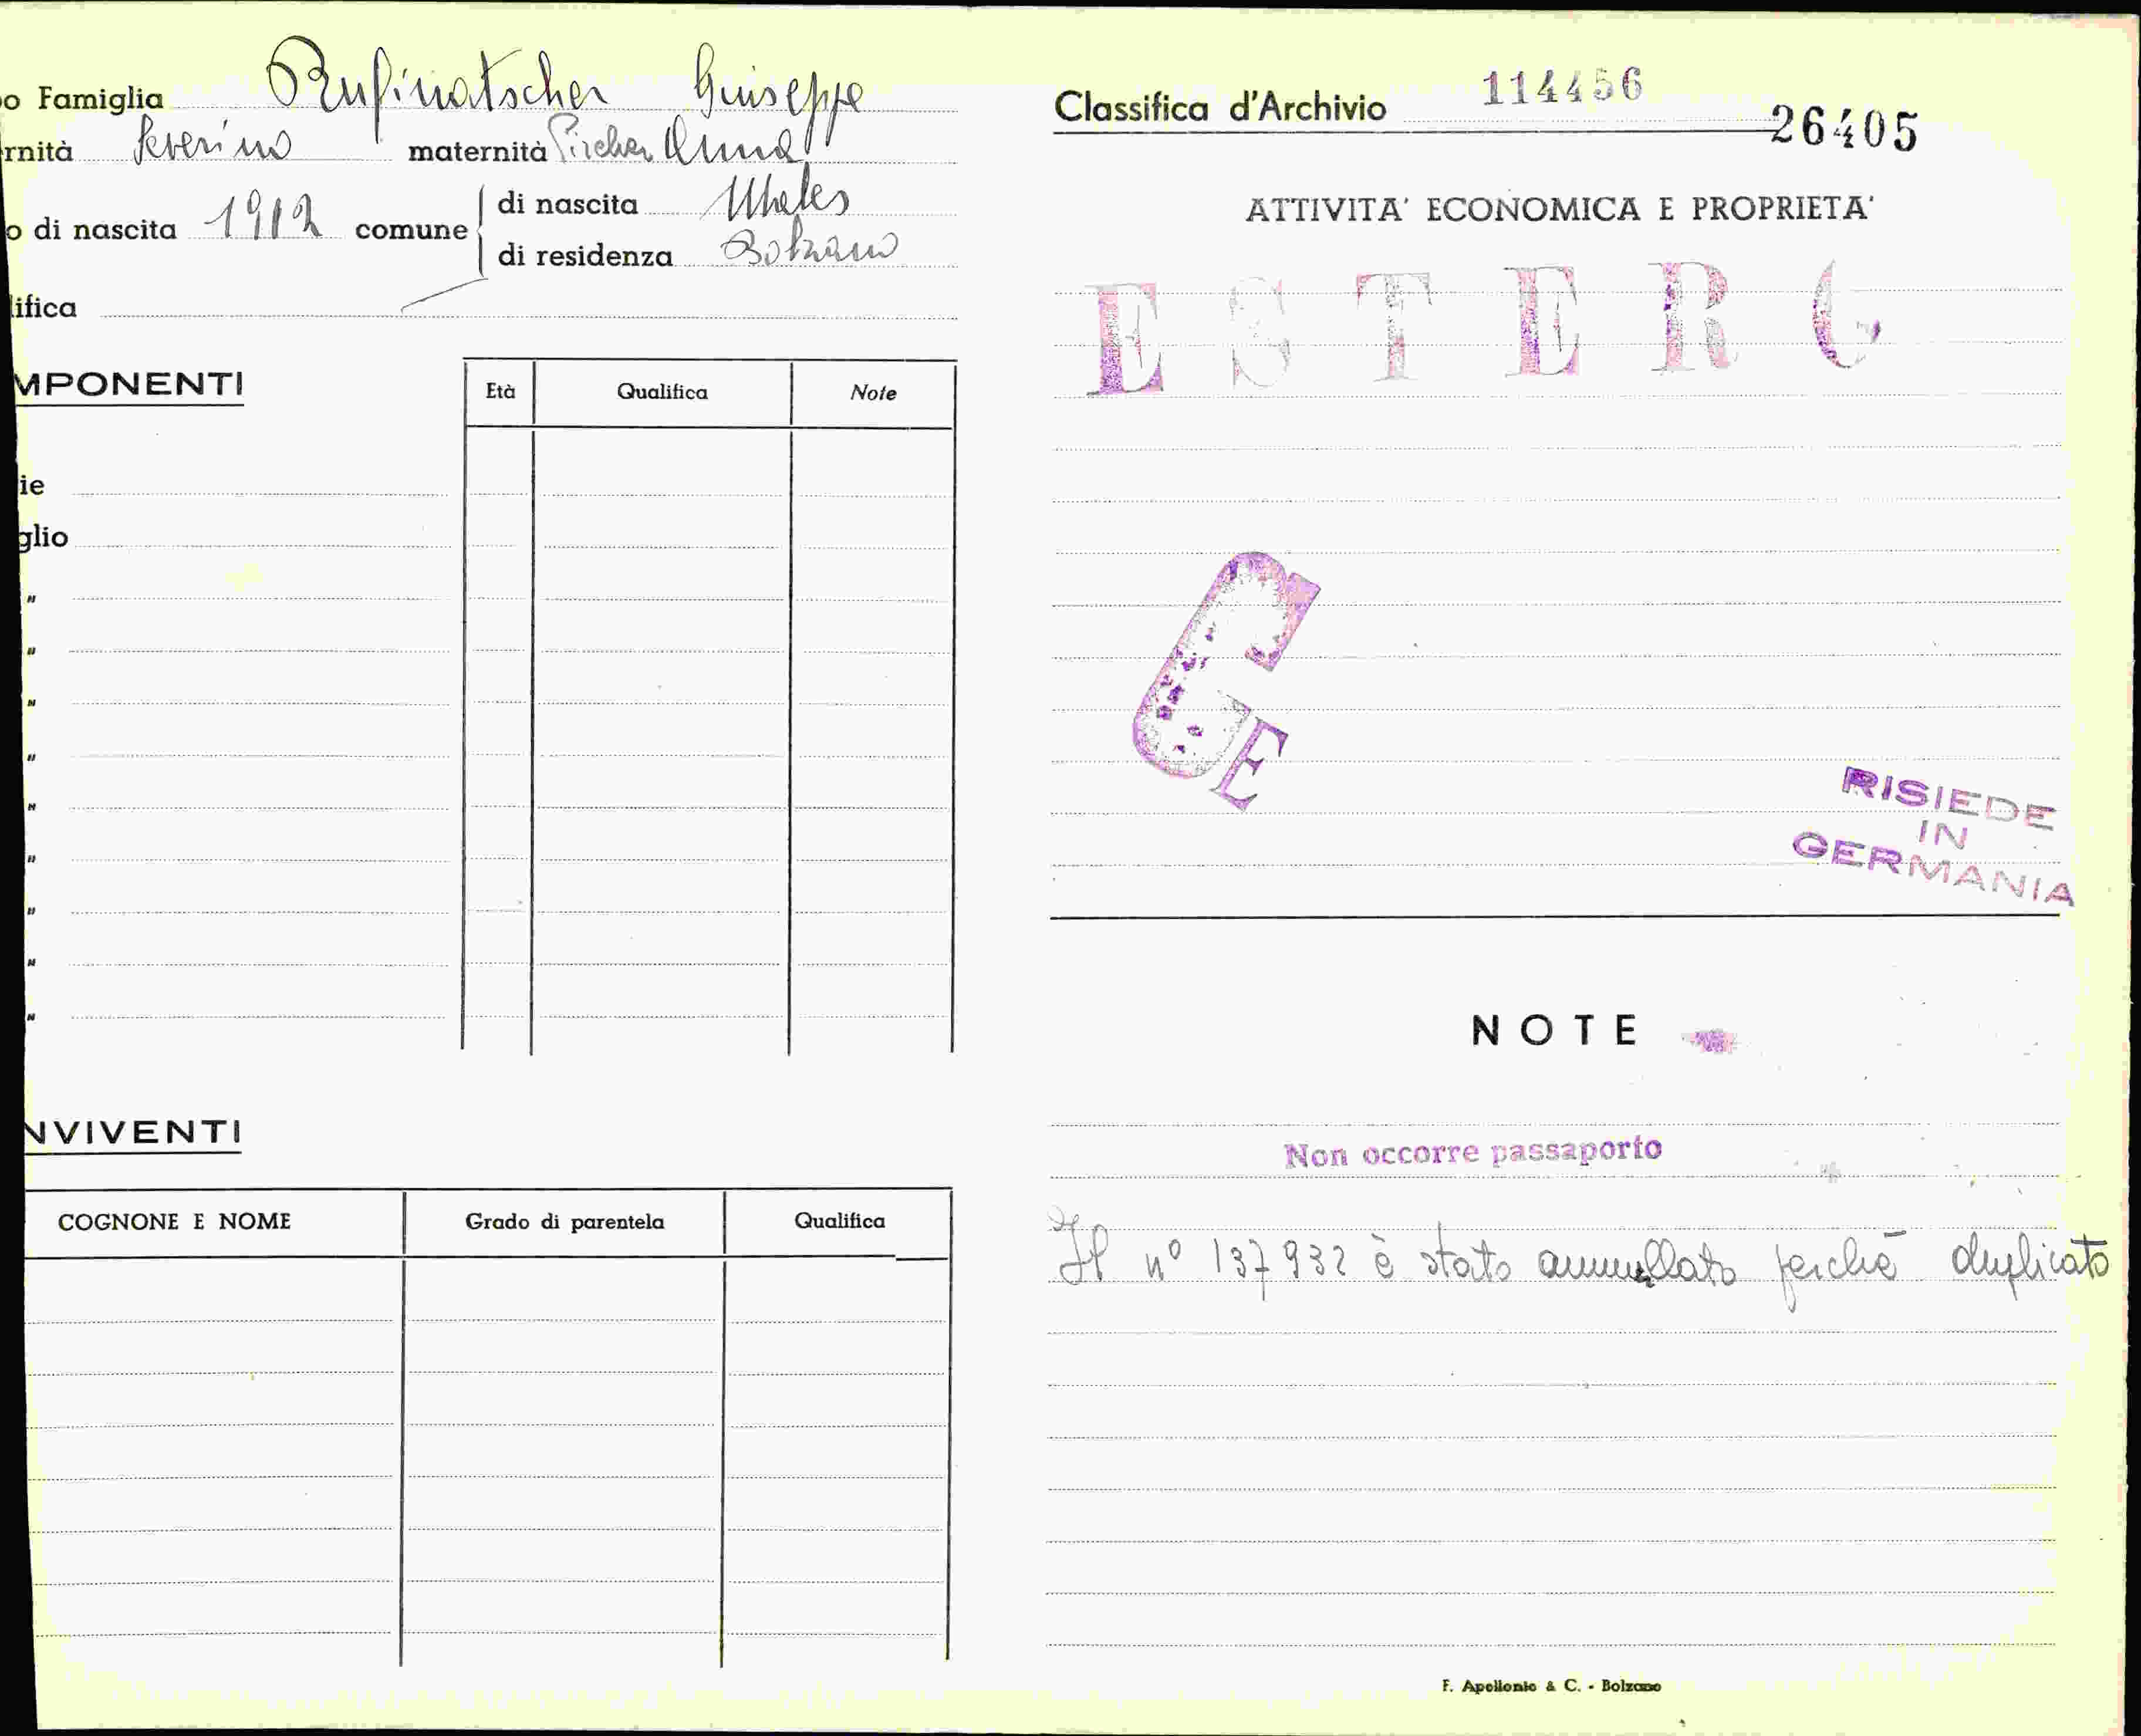 o Famiglia Rufinatscher Giuseppe
rnità Severino maternità Pircher Anna
o di nascita 1912 comune di nascita Malles
di residenza Bolzano
lifica
MPONENTI
Età Qualifica Note
ie
glio
"
"
"
"
"
"
"
"
"
NVIVENTI
COGNONE E NOME Grado di parentela Qualifica
Classifica d'Archivio 114456
26405
ATTIVITA' ECONOMICA E PROPRIETA'
ESTERO
G
E
RISIEDE
IN
GERMANIA
NOTE
Non occorre passaporto
Il nº 137932 è stato annullato perchè duplicato
F. Apollonio & C. - Bolzano